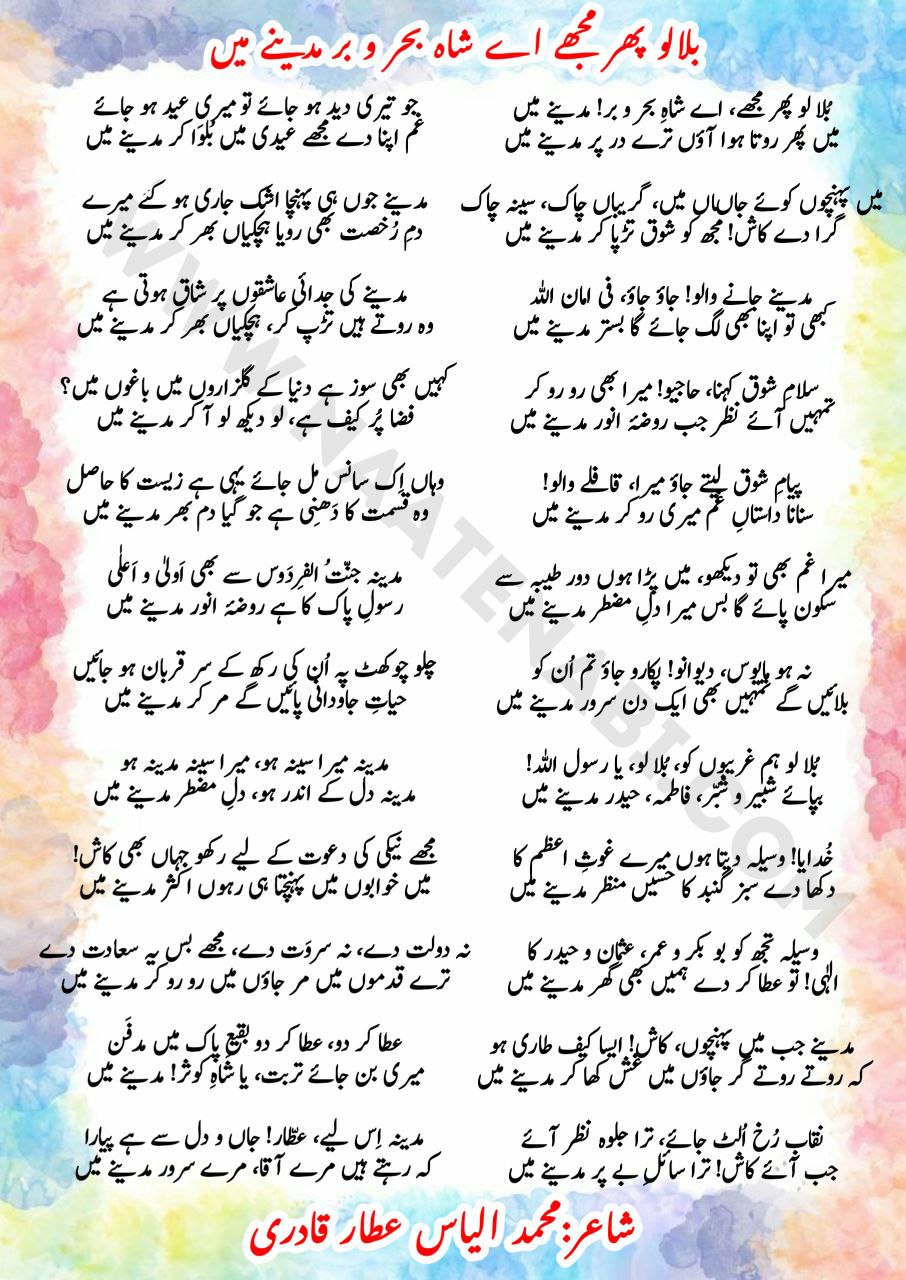 بلا لو پھر مجھے اے شاہ بحر و بر مدینے میں
بُلا لو پھر مجھے، اے شاہِ بحر و بر! مدینے میں
میں پھر روتا ہوا آؤں ترے در پر مدینے میں
میں پہنچوں کوئے جاناں میں، گریباں چاک، سینہ چاک
گرا دے کاش! مجھ کو شوق تڑپا کر مدینے میں
مدینے جانے والو! جاؤ جاؤ، فی امان اللہ
کبھی تو اپنا بھی لگ جائے گا بستر مدینے میں
سلامِ شوق کہنا، حاجیو! میرا بھی رو رو کر
تمہیں آئے نظر جب روضۂ انور مدینے میں
پیامِ شوق لیتے جاؤ میرا، قافلے والو!
سنانا داستانِ غم میری رو کر مدینے میں
میرا غم بھی تو دیکھو، میں پڑا ہوں دور طیبہ سے
سکون پائے گا بس میرا دلِ مضطر مدینے میں
نہ ہو مایوس، دیوانو! پکارو جاؤ تم اُن کو
بلائیں گے تمہیں بھی ایک دن سرور مدینے میں
بُلا لو ہم غریبوں کو، بُلا لو، یا رسول اللہ!
بپائے شبیر و شبّر، فاطمہ، حیدر مدینے میں
خُدایا! وسیلہ دیتا ہوں میرے غوثِ اعظم کا
دکھا دے سبز گنبد کا حسیں منظر مدینے میں
وسیلہ تجھ کو بو بکر و عمر، عثمان و حیدر کا
الٰہی! تو عطا کر دے ہمیں بھی گھر مدینے میں
مدینے جب میں پہنچوں، کاش! ایسا کیف طاری ہو
کہ روتے روتے گر جاؤں میں غش کھا کر مدینے میں
نقابِ رُخ اُلٹ جائے، ترا جلوہ نظر آئے
جب آئے کاش! ترا سائلِ بے پر مدینے میں
جو تیری دید ہو جائے تو میری عید ہو جائے
غم اپنا دے مجھے عیدی میں بُلوَا کر مدینے میں
مدینے جوں ہی پہنچا اشک جاری ہو گئے میرے
دمِ رُخصت بھی رویا ہچکیاں بھر کر مدینے میں
مدینے کی جدائی عاشقوں پر شاق ہوتی ہے
وہ روتے ہیں تڑپ کر، ہچکیاں بھر کر مدینے میں
کہیں بھی سوز ہے دنیا کے گلزاروں میں باغوں میں؟
فضا پُر کیف ہے، لو دیکھ لو آ کر مدینے میں
وہاں اِک سانس مل جائے یہی ہے زیست کا حاصل
وہ قسمت کا دَھنِی ہے جو گیا دم بھر مدینے میں
مدینہ جنّتُ الفِردَوس سے بھی اَولیٰ و اَعلٰی
رسولِ پاک کا ہے روضۂ انور مدینے میں
چلو چوکھٹ پہ اُن کی رکھ کے سر قربان ہو جائیں
حیاتِ جاودانی پائیں گے مر کر مدینے میں
مدینہ میرا سینہ ہو، میرا سینہ مدینہ ہو
مدینہ دل کے اندر ہو، دلِ مضطر مدینے میں
مجھے نیکی کی دعوت کے لیے رکھو جہاں بھی کاش!
میں خوابوں میں پہنچتا ہی رہوں اکثر مدینے میں
نہ دولت دے، نہ سروَت دے، مجھے بس یہ سعادت دے
ترے قدموں میں مر جاؤں میں رو رو کر مدینے میں
عطا کر دو، عطا کر دو بقیعِ پاک میں مدفَن
میری بن جائے تربت، یا شاہِ کوثر! مدینے میں
مدینہ اِس لیے، عطّار! جاں و دل سے ہے پیارا
کہ رہتے ہیں مرے آقا، مرے سرور مدینے میں
شاعر: محمد الیاس عطار قادری
WWW.NAATENABI.COM